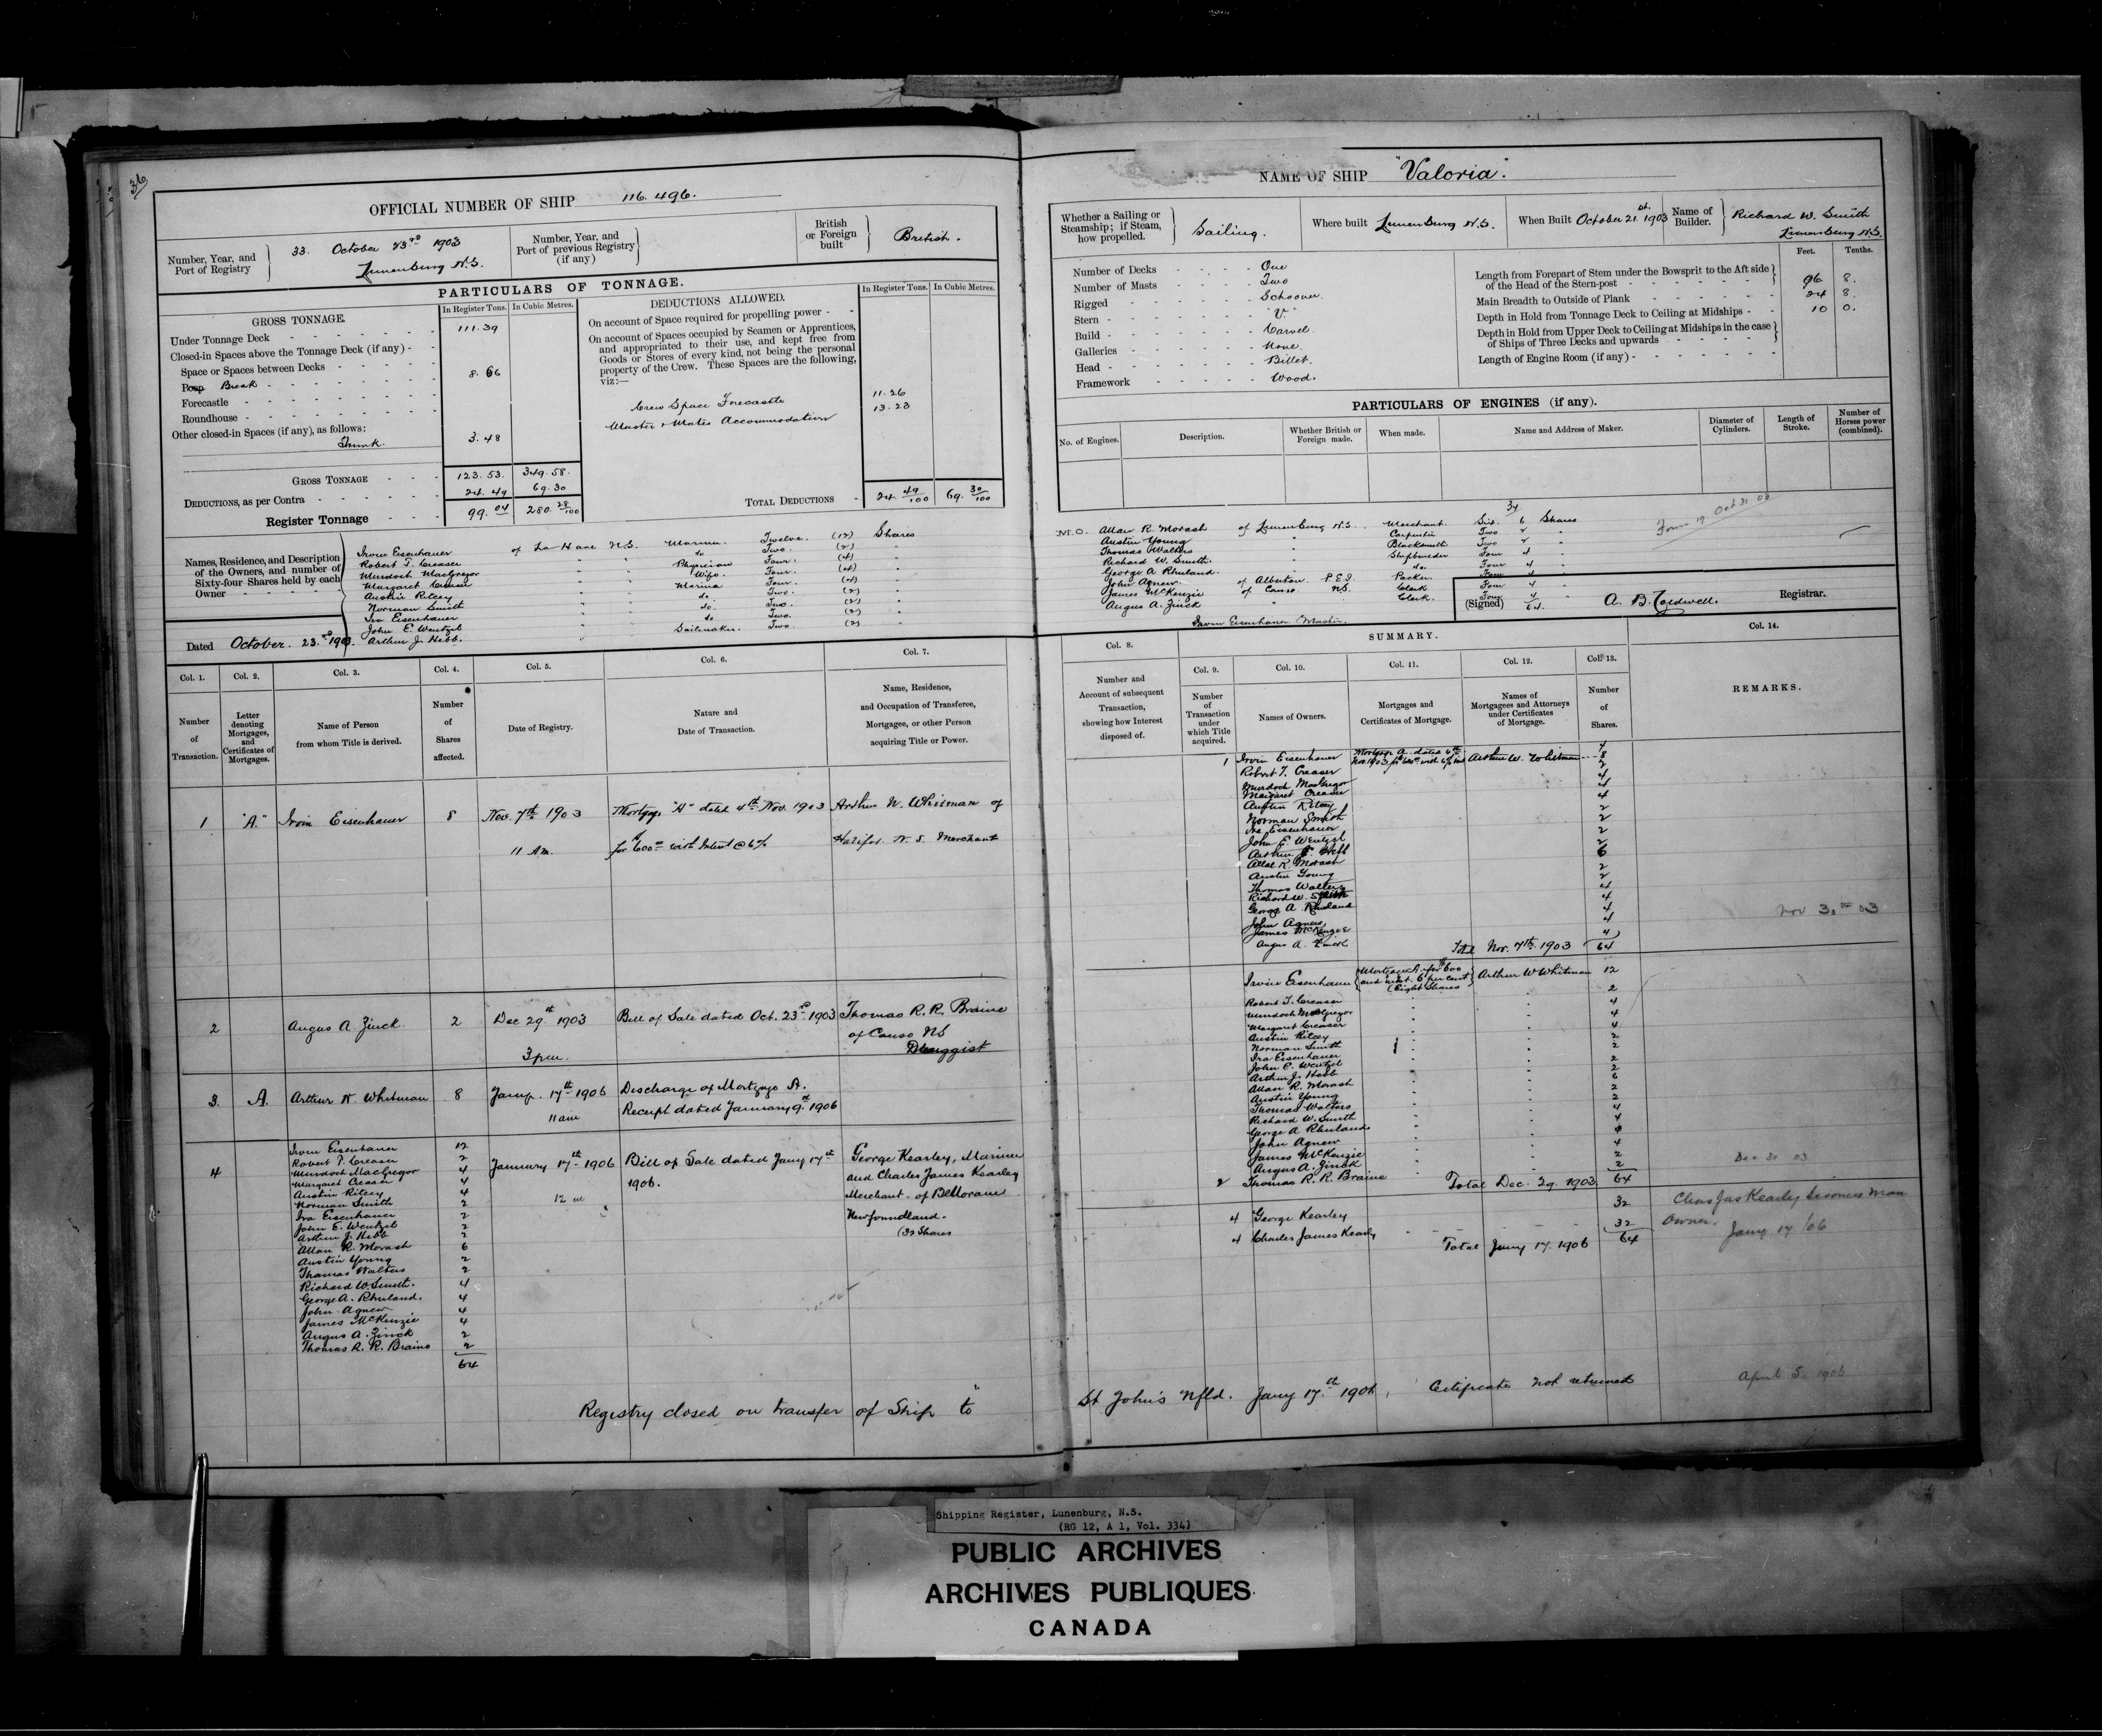 36
OFFICIAL NUMBER OF SHIP 116.496.
Number, Year, and Port of Registry
33. October 23rd 1903
Lunenburg N.S.
Number, Year, and Port of previous Registry (if any)
British or Foreign built
British.
PARTICULARS OF TONNAGE.
GROSS TONNAGE.
In Register Tons. In Cubic Metres.
Under Tonnage Deck 111.39
Closed-in Spaces above the Tonnage Deck (if any)
Space or Spaces between Decks
Poop Break 8.66
Forecastle
Roundhouse
Other closed-in Spaces (if any), as follows:
Trunk. 3.48
GROSS TONNAGE 123.53. 349.58.
DEDUCTIONS, as per Contra 24.49 69.30
Register Tonnage 99.04 280.28/100
DEDUCTIONS ALLOWED.
In Register Tons. In Cubic Metres.
On account of Space required for propelling power
On account of Spaces occupied by Seamen or Apprentices,
and appropriated to their use, and kept free from
Goods or Stores of every kind, not being the personal
property of the Crew. These Spaces are the following,
viz:—
Crew Space Forecastle 11.26
Master & Mates Accommodation 13.23
TOTAL DEDUCTIONS 24.49/100 69.30/100
Names, Residence, and Description
of the Owners, and number of
Sixty-four Shares held by each
Owner
Irvin Eisenhauer of La Have N.S. Mariner Twelve. (12) Shares
Robert T. Creaser " " do Two. (2) "
Murdoch MacGregor " " Physician Four. (4) "
Margaret Creaser " " Wife. Four. (4) "
Austin Ritcey " " Mariner Four. (4) "
Norman Smith " " do. Two. (2) "
Ira Eisenhauer " " do. Two. (2) "
John E. Wentzel " " do Two. (2) "
Arthur J. Hebb. " Sailmaker. Two. (2) "
Dated October. 23rd 1903.
Col. 1. Col. 2. Col. 3. Col. 4. Col. 5. Col. 6. Col. 7.
Number of Transaction.
Letter denoting Mortgages, and Certificates of Mortgages.
Name of Person from whom Title is derived.
Number of Shares affected.
Date of Registry.
Nature and Date of Transaction.
Name, Residence, and Occupation of Transferee, Mortgagee, or other Person acquiring Title or Power.
1 "A." Irvin Eisenhauer 8 Nov. 7th 1903 Mortgage "A" dated 4th Nov. 1903 Arthur W. Whitman of
11 Am. for 600.00 with Interest @ 6% Halifax N.S. Merchant
2 Angus A. Zinck 2 Dec 29th 1903 Bill of Sale dated Oct. 23rd 1903 Thomas R. R. Braine
of Canso NS
3 pm. Druggist
3. A. Arthur W. Whitman 8 Jany. 17th 1906 Discharge of Mortgage A.
11 am Receipt dated January 9th 1906
4 Irvin Eisenhauer 12 January 17th 1906 Bill of Sale dated Jany 17th George Kearley, Mariner
Robert T. Creaser 2 1906. and Charles James Kearley
Murdoch MacGregor 4 12 m Merchant of Belloram
Margaret Creaser 4 Newfoundland.
Austin Ritcey 4 (32 Shares
Norman Smith 2
Ira Eisenhauer 2
John E. Wentzel 2
Arthur J. Hebb 2
Allan R. Morash 6
Austin Young 2
Thomas Walters 2
Richard W. Smith. 4
George A. Rhuland. 4
John Agnew 4
James McKenzie 4
Angus A. Zinck 2
Thomas R. R. Braine 2
64
Registry closed on transfer of Ship to
NAME OF SHIP "Valoria".
Whether a Sailing or Steamship; if Steam, how propelled.
Sailing.
Where built Lunenburg N.S.
When Built October 21st. 1903
Name of Builder.
Richard W. Smith
Lunenburg N.S.
Number of Decks One
Number of Masts Two
Rigged Schooner.
Stern "V."
Build Carvel.
Galleries None.
Head Billet.
Framework Wood.
Feet. Tenths.
Length from Forepart of Stem under the Bowsprit to the Aft side
of the Head of the Stern-post 96 8.
Main Breadth to Outside of Plank 24 8.
Depth in Hold from Tonnage Deck to Ceiling at Midships 10 0.
Depth in Hold from Upper Deck to Ceiling at Midships in the case
of Ships of Three Decks and upwards
Length of Engine Room (if any)
PARTICULARS OF ENGINES (if any).
No. of Engines. Description. Whether British or Foreign made. When made. Name and Address of Maker. Diameter of Cylinders. Length of Stroke. Number of Horses power (combined).
34
M.O. Allan R. Morash of Lunenburg N.S. Merchant. Six. 6 Shares
Austin Young " Carpenter Two 2 "
Thomas Walters " Blacksmith Two 2 "
Richard W. Smith. " Shipbuilder Four 4 "
George A Rhuland. " do Four 4 "
John Agnew. of Alberton P.E.I. Packer. Four 4
James McKenzie of Canso. NS. Clerk Four 4 "
Angus A. Zinck " Clerk. Four 4
64.
Irvin Eisenhauer Master.
Form 19 Oct 31 03
(Signed) Registrar.
SUMMARY.
Col. 8. Col. 9. Col. 10. Col. 11. Col. 12. Col. 13. Col. 14.
Number and Account of subsequent Transaction, showing how Interest disposed of.
Number of Transaction under which Title acquired.
Names of Owners.
Mortgages and Certificates of Mortgage.
Names of Mortgagees and Attorneys under Certificates of Mortgage.
Number of Shares.
REMARKS.
1 Irvin Eisenhauer Mortgage A. dated 4th Arthur W. Whitman 4
Nov. 1903 for 600.00 with 6% int 8
Robert T. Creaser 2
Murdoch MacGregor 4
Margaret Creaser 4
Austin Ritcey 4
Norman Smith 2
Ira Eisenhauer 2
John E. Wentzel 2
Arthur J. Hebb 2
Allan R. Morash 6
Austin Young 2
Thomas Walters 2
Richard W. Smith 4
George A Rhuland 4
John Agnew 4
James McKenzie 4
Angus A. Zinck 4
Total Nov. 7th 1903 64
Irvin Eisenhauer Mortgage A. for $600 Arthur W Whitman 12
and int at 6 per cent
(Eight Shares
Robert T. Creaser 2
Murdoch McGregor 4
Margaret Creaser 4
Austin Ritcey 4
Norman Smith 2
Ira Eisenhauer 2
John E. Wentzel 2
Arthur J. Hebb 2
Allan R. Morash 6
Austin Young 2
Thomas Walters 2
Richard W. Smith 4
George A Rhuland 4
John Agnew 4
James McKenzie 4
Angus A. Zinck 2
2 Thomas R. R. Braine 2
Total Dec. 29. 1903 64
Dec 31 03
4 George Kearley 32 Chas Jas Kearley becomes Man
4 Charles James Kearley 32 Owner.
Total Jany 17. 1906 64 Jany 17/06
St John's Nfld. Jany 17th 1906, Certificate not returned
April 5. 1906
Shipping Register, Lunenburg, N.S.
(RG 12, A 1, Vol. 334)
PUBLIC ARCHIVES
ARCHIVES PUBLIQUES
CANADA